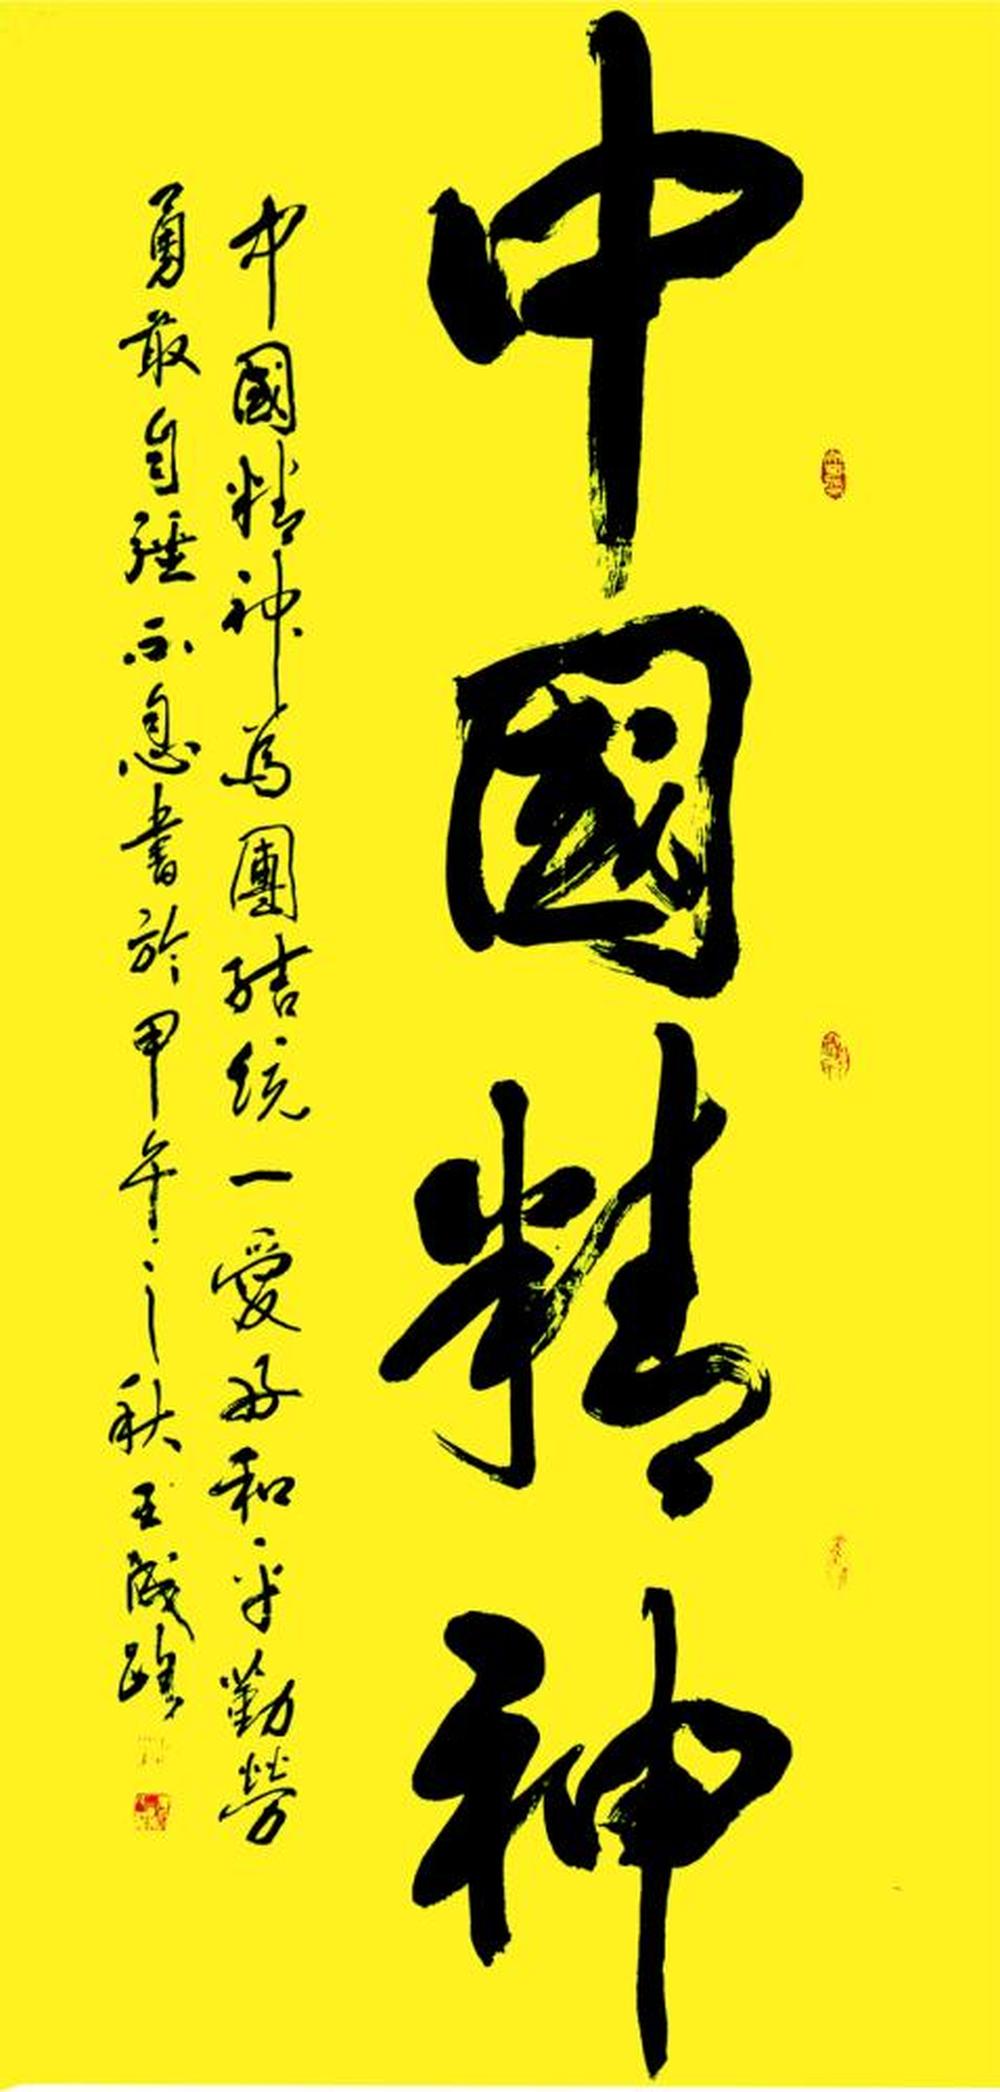 中國精神
中國精神為團結統一愛好和平勤勞
勇敢自强不息書於甲午之秋王成